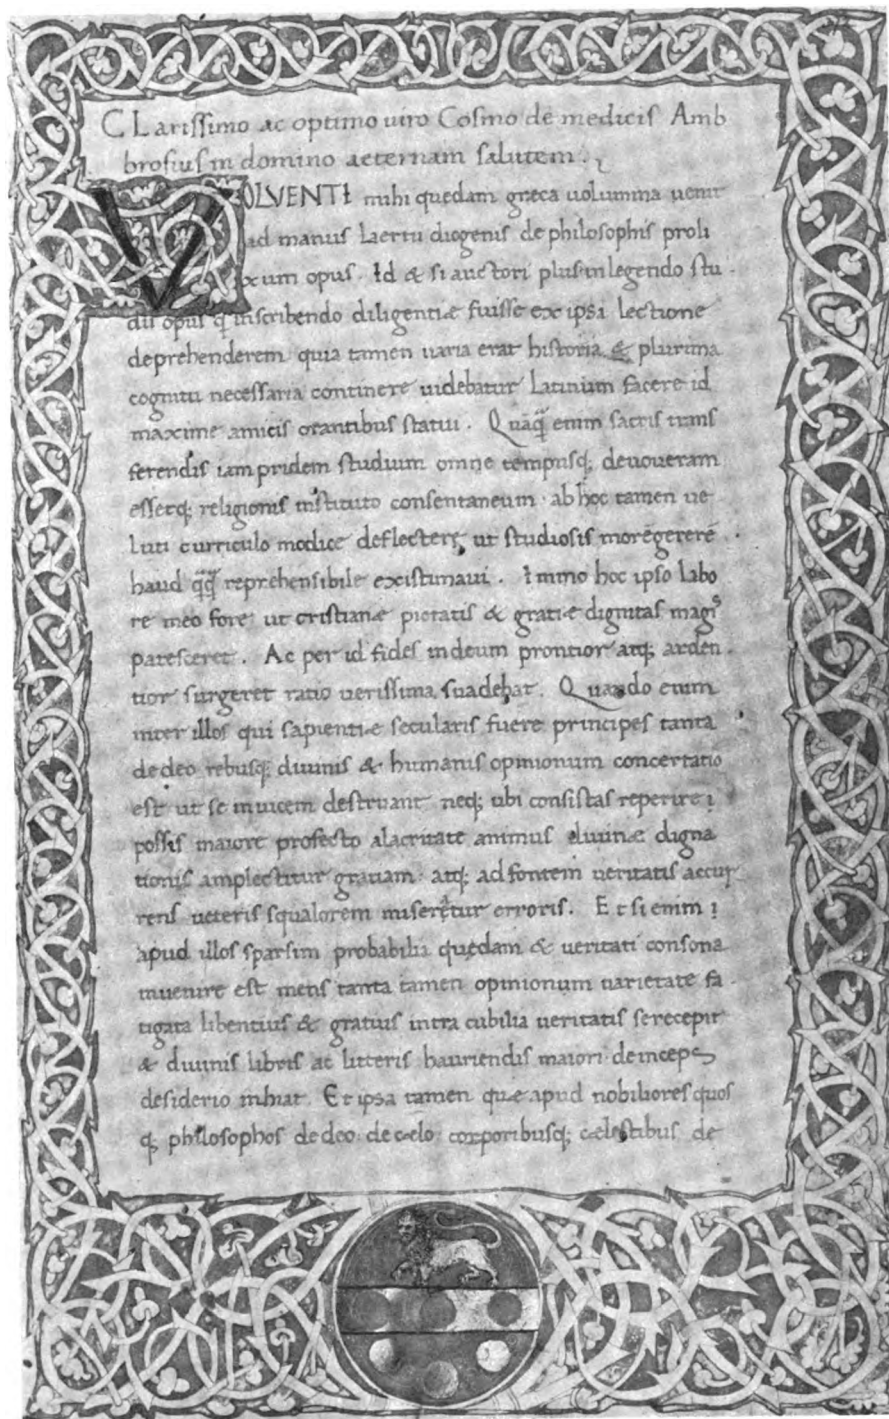 CLarissimo ac optimo uiro Cosmo de medicis Amb
brosius in domino aeternam salutem.
VOLVENTI mihi quedam greca uolumina uenit
ad manus Laertii diogenis de philosophis proli
xum opus. Id & si auctori plus in legendo stu
dii opus q̃ inscribendo diligentiæ fuisse ex ipsa lectione
deprehenderem quia tamen uaria erat historia & plurima
cognitu necessaria continere uidebatur latinium facere id
maxime amicis orantibus statui. Quãq̃ enim sacris trans
ferendis iam pridem studium omne tempusq; deuoueram
essetq; religionis instituto consentaneum. ab hoc tamen ue
luti curriculo modice deflectere, ut studiosis morẽ gererẽ
haud q̃q̃ reprehensibile existimaui. Immo hoc ipso labo
re meo fore ut cristianæ pietatis & gratiæ dignitas magis
patesceret. Ac per id fides in deum promtior atq; arden
tior surgeret ratio uerissima suadebat. Quando enim
inter illos qui sapientiæ secularis fuere principes tanta
de deo rebusq; diuinis & humanis opinionum concertatio
est ut se inuicem destruant neq; ubi consistas reperire
possis maiore profecto alacritate animus diuinæ digna
tionis amplectitur gratiam. atq; ad fontem ueritatis accur
rens ueteris squalorem miseretur erroris. Et si enim
apud illos sparsim probabilia quędam & ueritati consona
inuenire est mens tanta tamen opinionum uarietate fa
tigata libentius & gratius intra cubilia ueritatis se recepit
& diuinis libris ac litteris hauriendis maiori deinceps
desiderio inhiat. Et ipsa tamen quæ apud nobiliores quos
q; philosophos de deo. de cælo corporibusq; cælestibus de